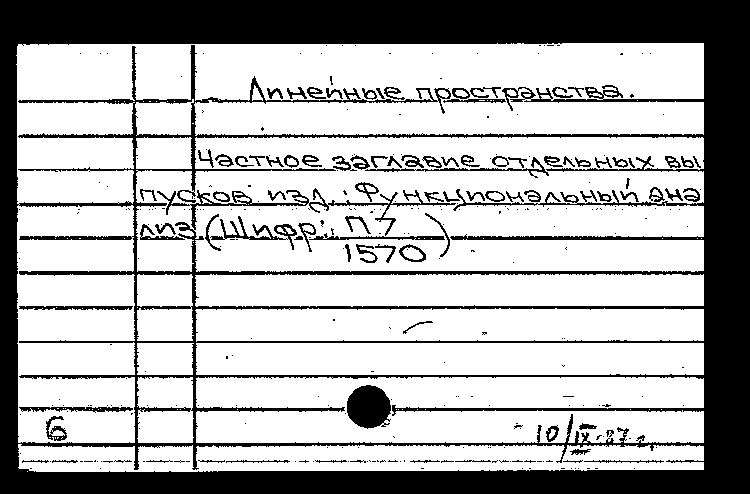 Линейные пространства.
Частное заглавие отдельных вы
пусков изд.: Функциональный ана
лиз (Шифр: П7
1570)
6
10/IX-87 г.